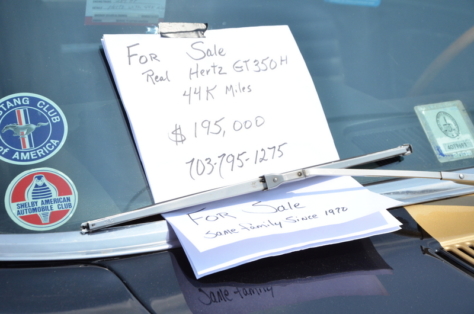 FOR Sale
Real Hertz GT350H
44K Miles
$195,000
703-795-1275
For Sale
Same family Since 1972
Same family
MUSTANG CLUB
of AMERICA
SHELBY AMERICAN
AUTOMOBILE CLUB